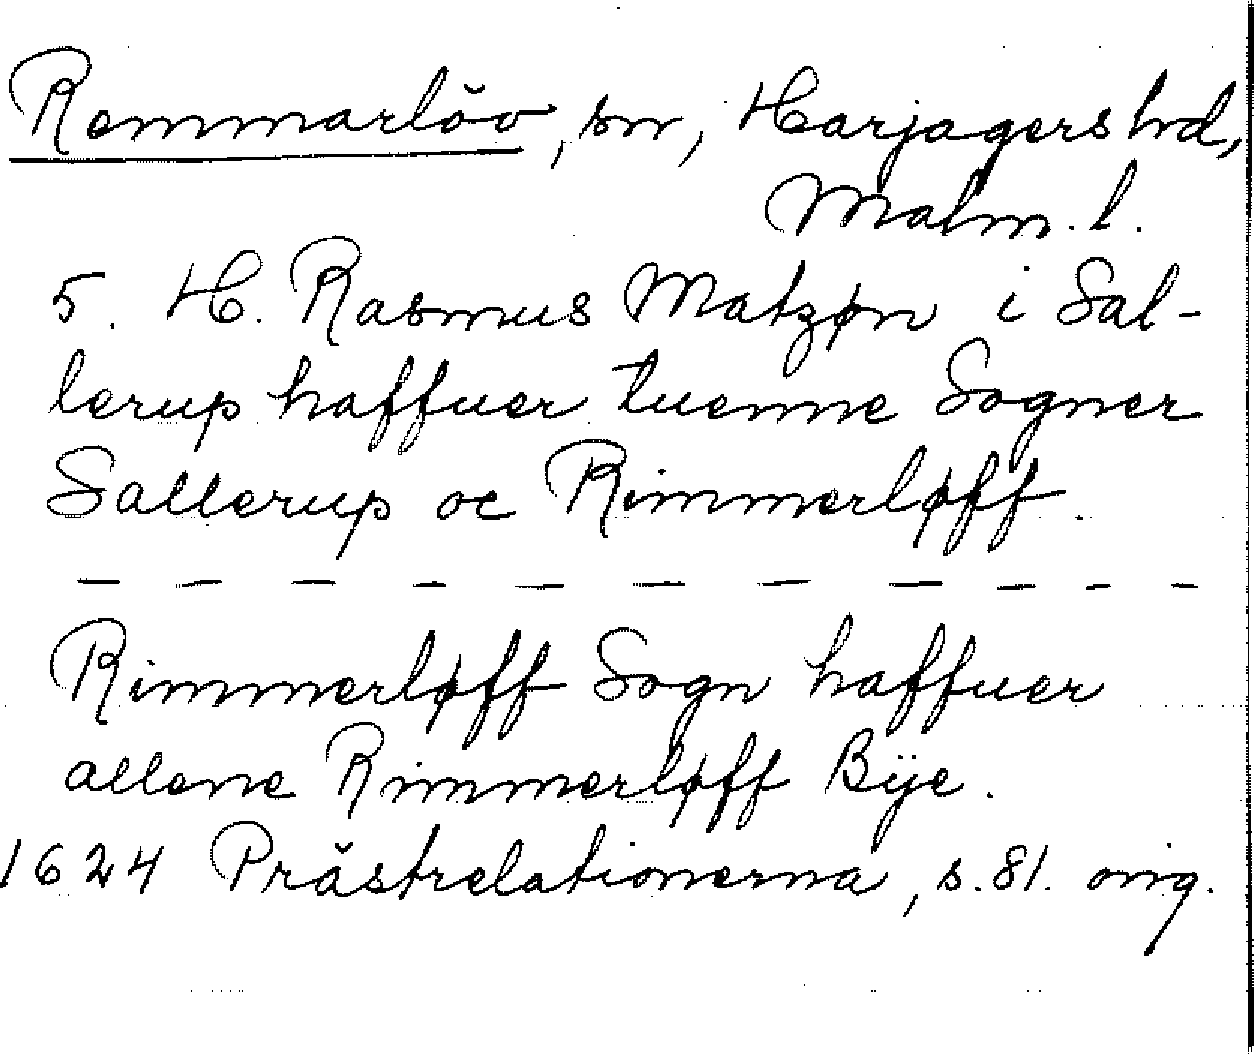 Remmarlöv, sn, Harjagers hd,
Malm. l.
5. H. Rasmus Matzøn i Sal-
lerup haffuer tuenne Sogner
Sallerup oc Rimmerløff.
— — — — — — — — — — —
Rimmerløff Sogn haffuer
allene Rimmerløff Bÿe.
1624 Prästrelationerna, s. 81. orig.